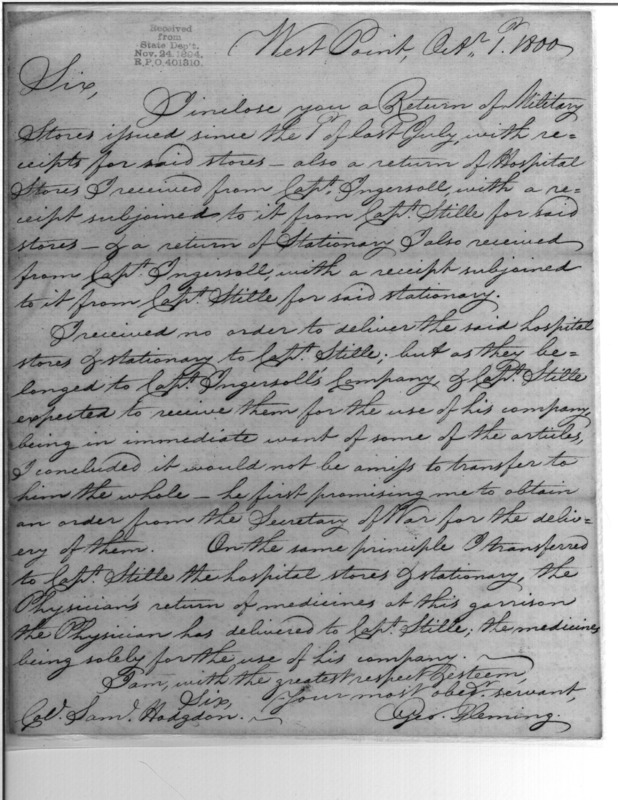 Received
from
State Dep't.
Nov. 24, 1894,
R.P.O. 401310.
West Point, Octr. 1st. 1800
Sir,
I inclose you a Return of Military
Stores issued since the 1st of last July, with re=
ceipts for said stores — also a return of Hospital
Stores I received from Capt. Ingersoll, with a re=
ceipt subjoined to it from Capt. Stille for said
stores — & a return of Stationary I also received
from Capt. Ingersoll, with a receipt subjoined
to it from Capt. Stille for said stationary.
I received no order to deliver the said hospital
stores & stationary to Capt. Stille; but as they be=
longed to Capt. Ingersoll's Company, & Capt. Stille
expected to receive them for the use of his company,
being in immediate want of some of the articles,
I concluded it would not be amiss to transfer to
him the whole — he first promising me to obtain
an order from the Secretary of War for the deliv=
ery of them. On the same principle I transferred
to Capt. Stille the hospital stores & stationary, the
Physician's return of medicines at this garrison
the Physician has delivered to Capt. Stille; the medicines
being solely for the use of his company.
I am, with the greatest respect & esteem,
Sir, your most obedt. servant,
Col. Saml. Hodgdon. Geo. Fleming.